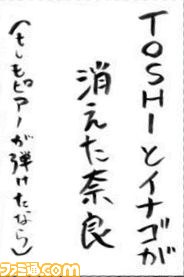 TOSHIとイナゴが
消えた奈良
(もしもピアノが弾けたなら)
ファミ通.com